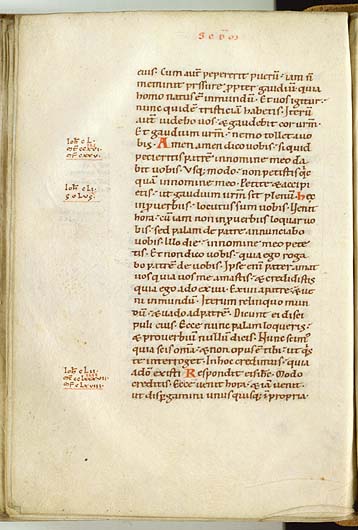 eius. Cum aut peperit puerū. iam ñ
meminit pssurę. ppter gaudiū. quia
homo natus ē in mundū. Et vos igitur
nunc quidē tristiciam habetis. Iterū
aut videbo vos. & gaudebit cor urm̄.
Et gaudium urm̄. nemo tollet a vo
bis. Amen amen dico vobis. si quid
petieritis patrē in nomine meo da
bit vobis. Usq; modo. non petistis qc
quā in nomine meo. Petite & accipi
etis. ut gaudium urm̄ sit plenū. Hęc
in puerbiis. locutus sum vobis. Uenit
hora. cū iam non in puerbiis loquar vo
bis. sed palam de patre annunciabo
vobis. Illo die. in nomine meo pete
tis. Et non dico vobis. quia ego roga
bo patrē de vobis. Ipse eni pater amat
vos. quia vos me amastis. & credidistis
quia ego a deo exiui. Exiui a patre. & ue
ni in mundū. Iterum relinquo mun
dū. & vado ad patrē. Dicunt ei disci
puli eius. Ecce nunc palam loqueris.
& proverbiū nullū dicis. Nunc scim
quia scis oma. & non opus ē tibi. ut qs
te interroget. In hoc credimus. quia
a deo existi. Respondit eis ihc. Modo
creditis. Ecce venit hora. & iā venit.
ut dispgamini unus quisq; in propria.
Ioh c L.
Ioh c LI.
Ioh c LII